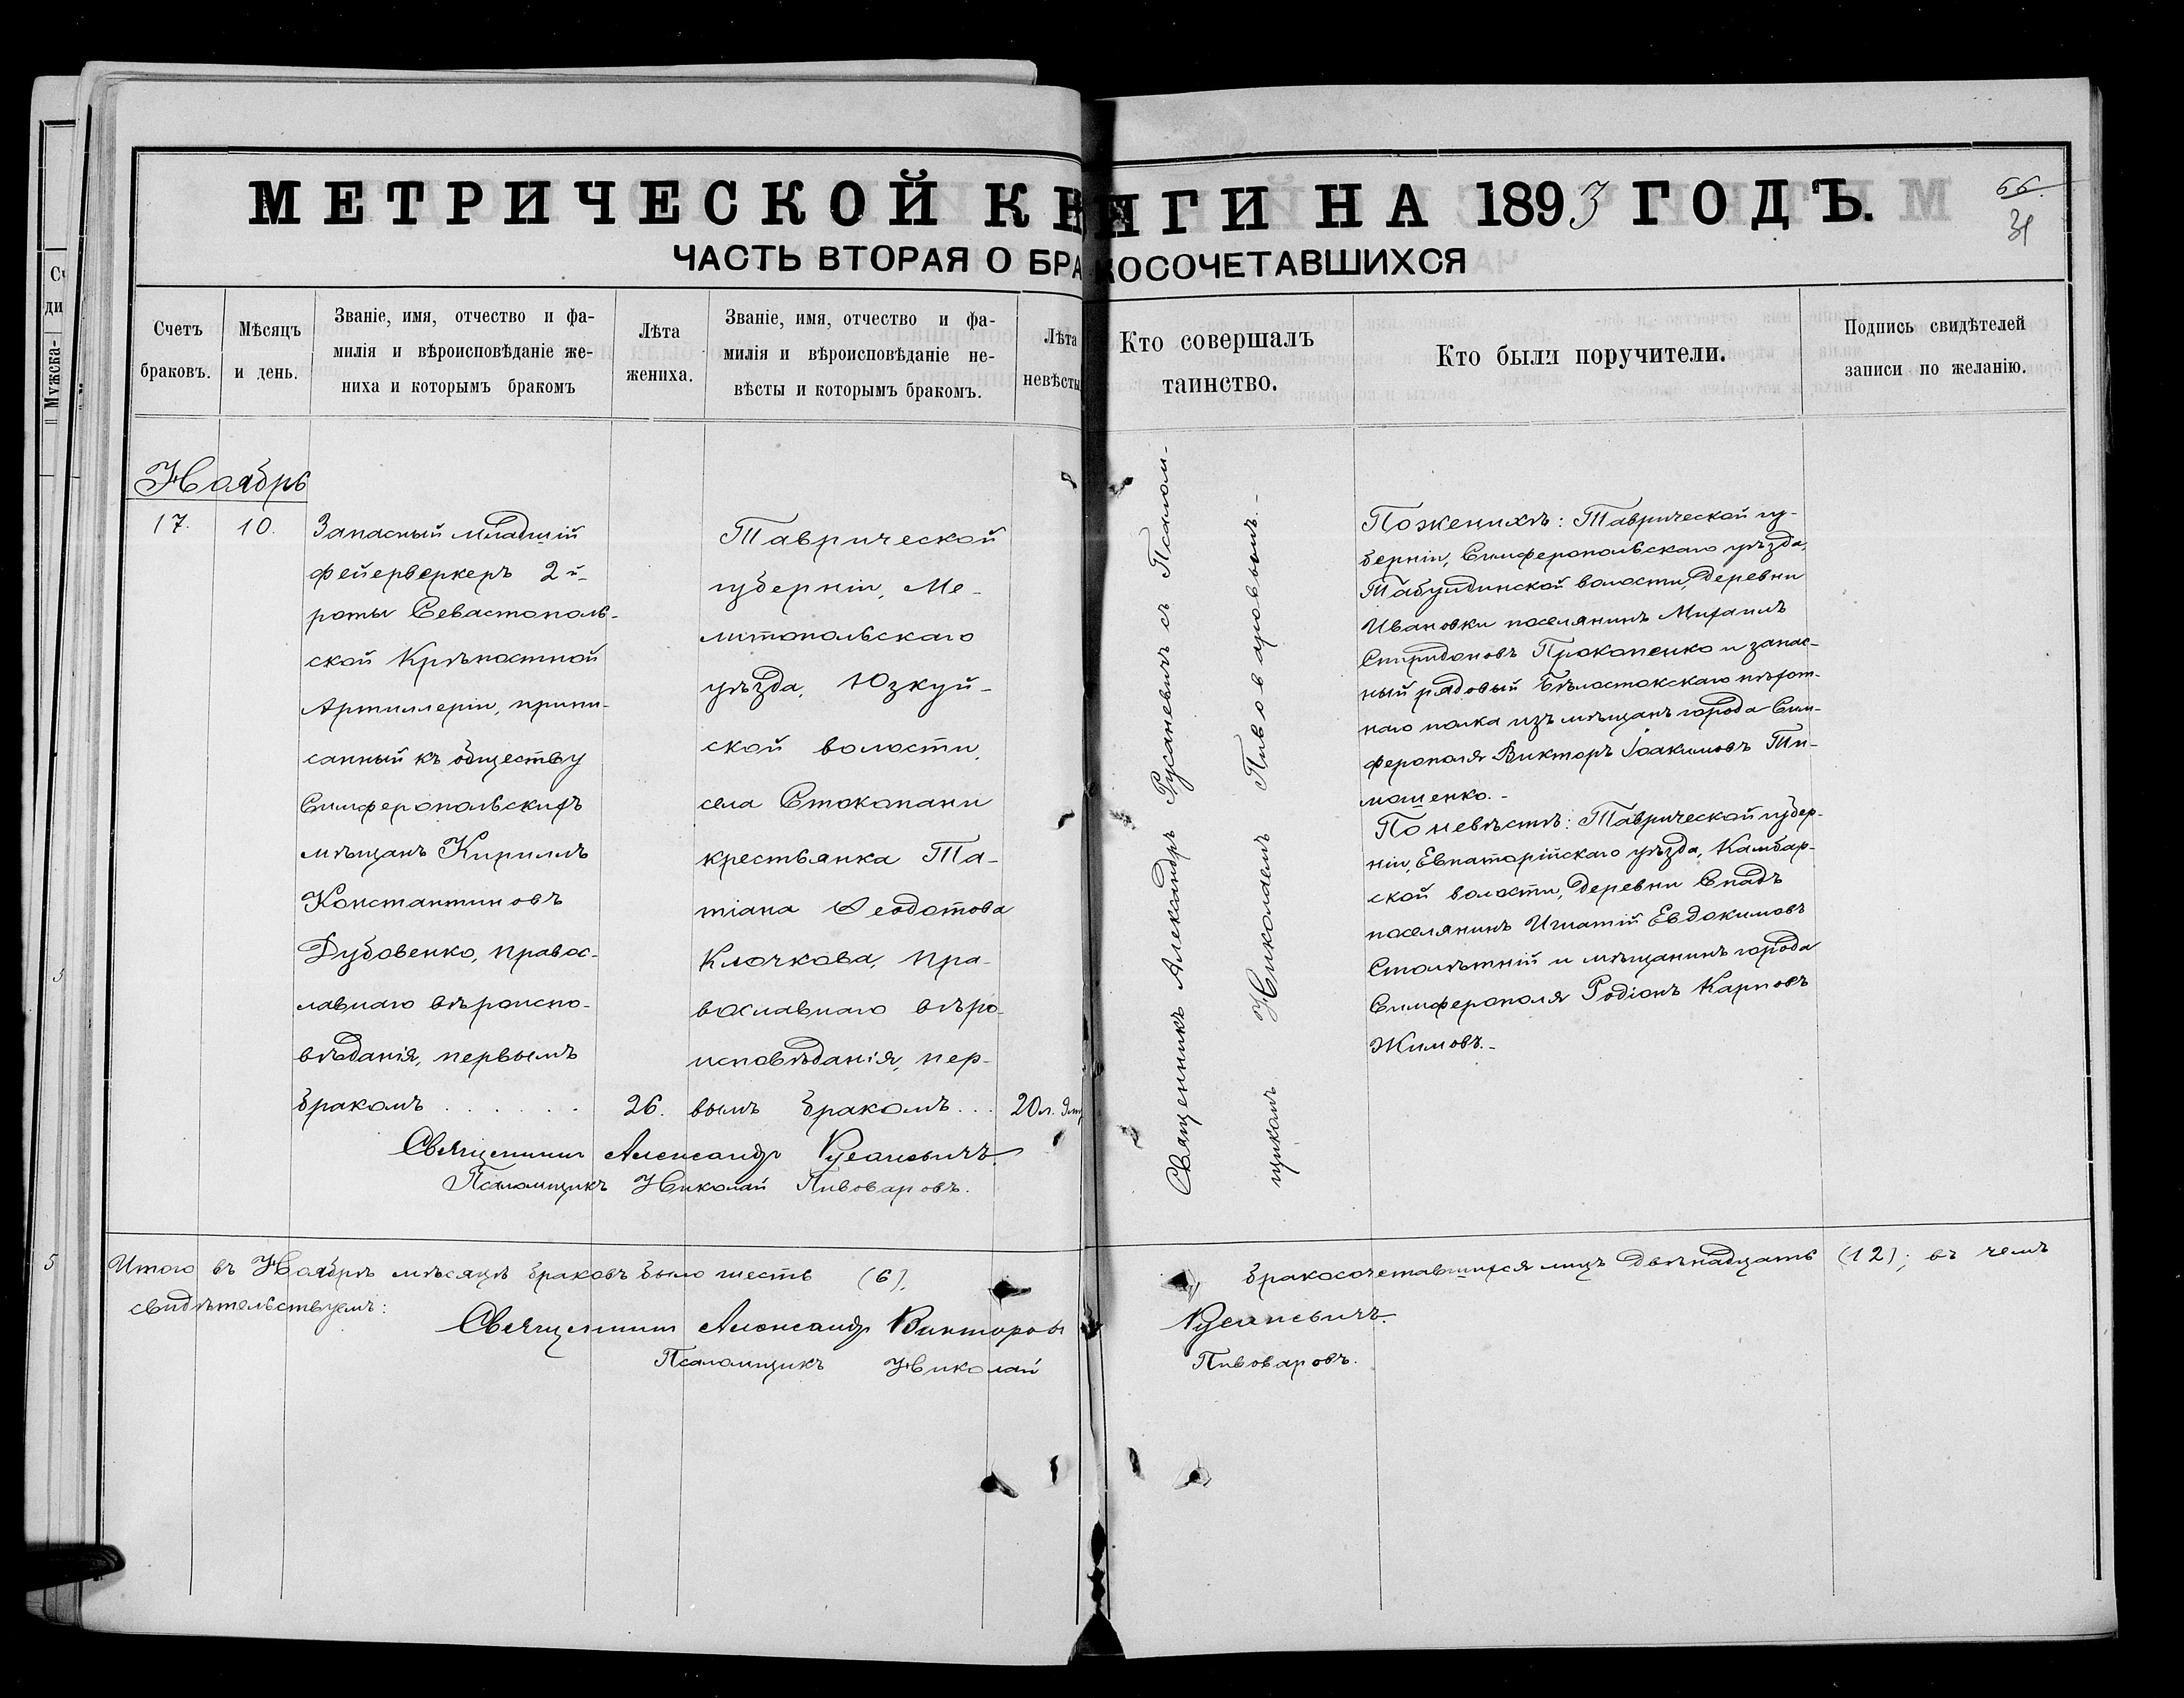 МЕТРИЧЕСКОЙ КНИГИ НА 1893 ГОДЪ.
66
31
ЧАСТЬ ВТОРАЯ О БРАКОСОЧЕТАВШИХСЯ
Счетъ
браковъ.
Мѣсяцъ
и день.
Званіе, имя, отчество и фа-
милія и вѣроисповѣданіе же-
ниха и которымъ бракомъ
Лѣта
жениха.
Званіе, имя, отчество и фа-
милія и вѣроисповѣданіе не-
вѣсты и которымъ бракомъ.
Лѣта
невѣсты
Кто совершалъ
таинство.
Кто были поручители.
Подпись свидѣтелей
записи по желанію.
Ноябрь
17.
10.
Запасный младшій
фейерверкеръ 2й-
роты Севастополь-
ской Крѣпостной
Артиллеріи, припи-
санный къ обществу
Симферопольскихъ
мѣщанъ Кириллъ
Константиновъ
Дубовенко, правос-
лавнаго вѣроиспо-
вѣданія, первымъ
бракомъ . . . . . .
26.
Таврической
губерніи, Ме-
литопольскаго
уѣзда, Юзкуй-
ской волости,
села Стокопани
крестьянка Та-
тіана Ѳеодотова
Клочкова, пра-
вославнаго вѣро-
исповѣданія, пер-
вымъ бракомъ. . .
20л.
Священникъ Александръ Русаневичъ съ Псалом-
щикомъ Николаемъ Пивоваровымъ.-
По женихѣ: Таврической гу-
берніи, Симферопольскаго уѣзда,
Табулдинской волости, деревни
Ивановки поселянинъ Михаилъ
Спиридоновъ Прокопенко и запас-
ный рядовый Бѣлостокскаго пѣхот-
наго полка изъ мѣщанъ города Сим-
ферополя Викторъ Іоакимовъ Ти-
мошенко.-
По невѣстѣ: Таврической губер-
ніи, Евпаторійскаго уѣзда, Камбар-
ской волости, деревни Спадъ
поселянинъ Игнатій Евдокимовъ
Столѣтній и мѣщанинъ города
Симферополя Родіонъ Карповъ
Жимовъ.-
Священникъ Александръ Русаневичъ.
Псаломщикъ Николай Пивоваровъ.
Итого въ Ноябрѣ мѣсяцѣ браковъ было шесть (6), бракосочетавшихся лицъ двѣнадцать (12); въ чемъ
свидѣтельствуемъ:
Священникъ Александръ Викторовъ Русаневичъ.
Псаломщикъ Николай Пивоваровъ.
5